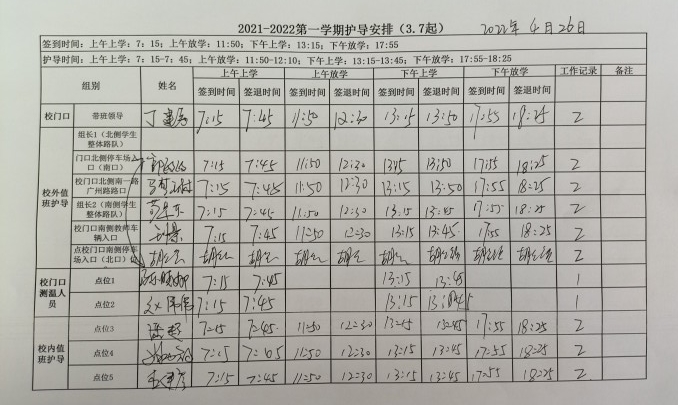 2021-2022第一学期护导安排（3.7起） 2022年4月26日
签到时间：上午上学：7：15；上午放学：11:50；下午上学：13:15；下午放学：17:55
护导时间：上午上学：7：15-7：45；上午放学：11:50-12:10；下午上学：13:15-13:45；下午放学：17:55-18:25
组别 姓名 上午上学 上午放学 下午上学 下午放学 工作记录 备注
签到时间 签退时间 签到时间 签退时间 签到时间 签退时间 签到时间 签退时间
校门口 带班领导 7:15 7:45 11:50 12:30 13:15 13:50 17:55 18:25 2
校外值班护导
组长1（北侧学生整体路队）
门口北侧停车场入口（南口） 7:15 7:45 11:50 12:30 13:50 17:55 18:25 2
校门口北侧南一路广州路路口 7:15 7:45 11:50 12:30 13:15 13:50 17:55 18:25 2
组长2（南侧学生整体路队） 7:15 7:45 11:50 12:30 13:15 13:45 17:55 18:25 2
校门口南侧教师车辆入口 7:15 7:45 11:50 12:30 13:15 13:45 17:55 18:25 2
点校门口南侧停车场入口（北口） 2
校门口测温人员
点位1 7:15 7:45 13:15 13:45 1
点位2 7:15 7:45 13:15 1
校内值班护导
点位3 7:15 7:45 11:50 12:30 13:15 13:45 17:55 18:25 2
点位4 7:15 11:50 12:30 13:15 13:45 17:55 18:25 2
点位5 7:15 7:45 11:50 12:30 13:15 13:45 17:55 18:25 2